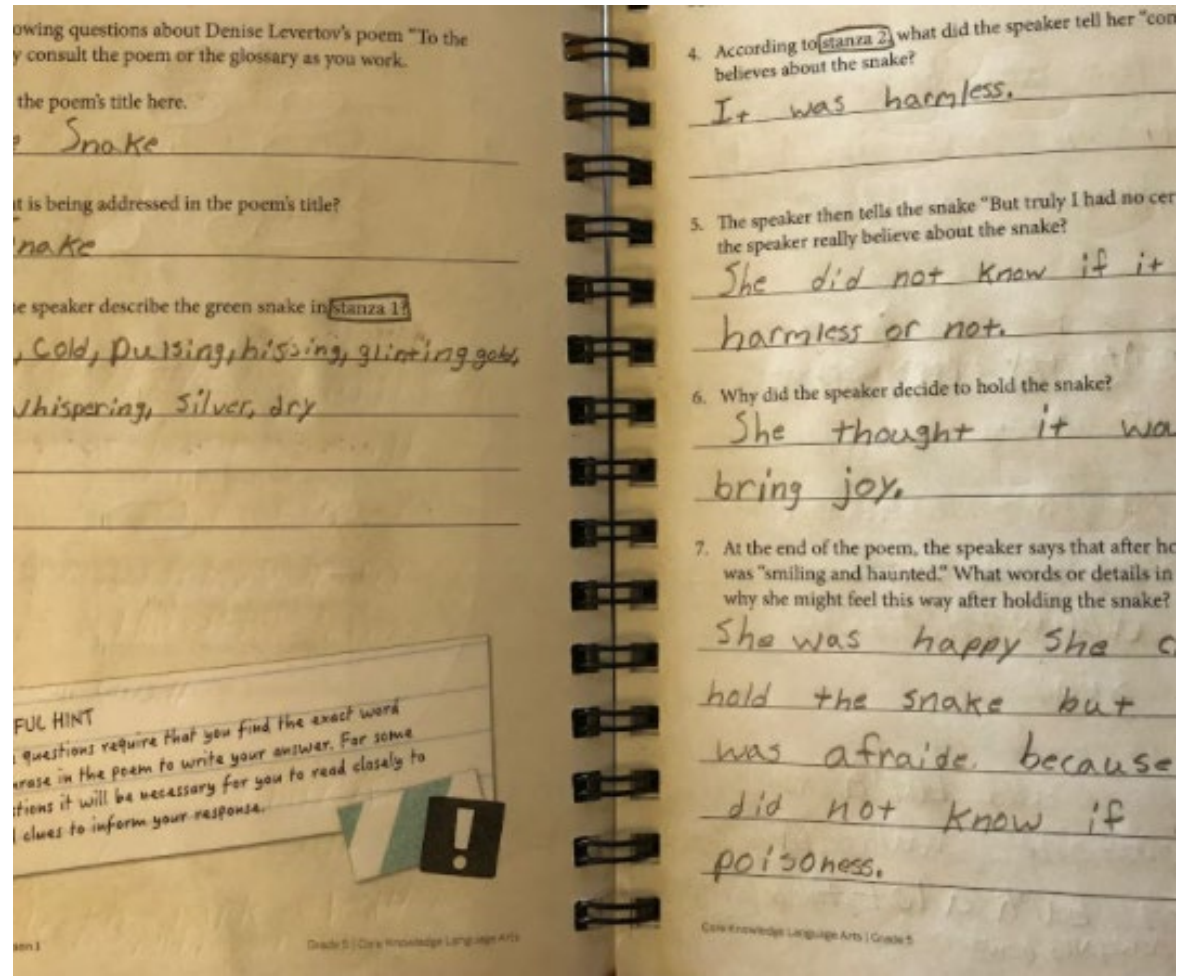 owing questions about Denise Levertov's poem "To the
y consult the poem or the glossary as you work.
the poem's title here.
e Snake
t is being addressed in the poem's title?
nake
e speaker describe the green snake in stanza 1?
, Cold, pulsing, hissing, glinting gold,
whispering, silver, dry
FUL HINT
questions require that you find the exact word
hrase in the poem to write your answer. For some
stions it will be necessary for you to read closely to
clues to inform your response.
son 1
Grade 5 | Core Knowledge Language Arts
4. According to stanza 2, what did the speaker tell her "com
believes about the snake?
It was harmless.
5. The speaker then tells the snake "But truly I had no cer
the speaker really believe about the snake?
She did not know if it
harmless or not.
6. Why did the speaker decide to hold the snake?
She thought it wo
bring joy.
7. At the end of the poem, the speaker says that after ho
was "smiling and haunted." What words or details in
why she might feel this way after holding the snake?
She was happy she c
hold the snake but
was afraide because
did not know if
poisoness.
Core Knowledge Language Arts | Grade 5